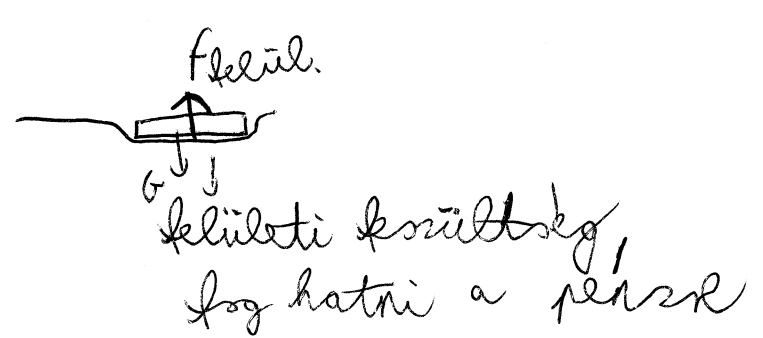 Ffelül.
G
felületi feszültség,
fog hatni a pénzre